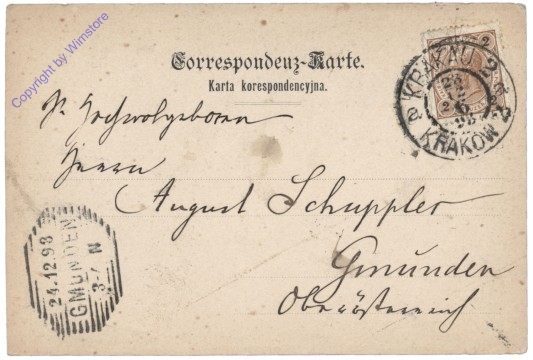 Copyright by Wimstore
Correspondenz-Karte.
Karta korespondencyjna.
KRAKAU 2
KRAKÓW
Sr Hochwolgeboren
Herrn
August Schuppler
Gmunden
Oberösterreich
24.12.98
GMUNDEN
3-4 N